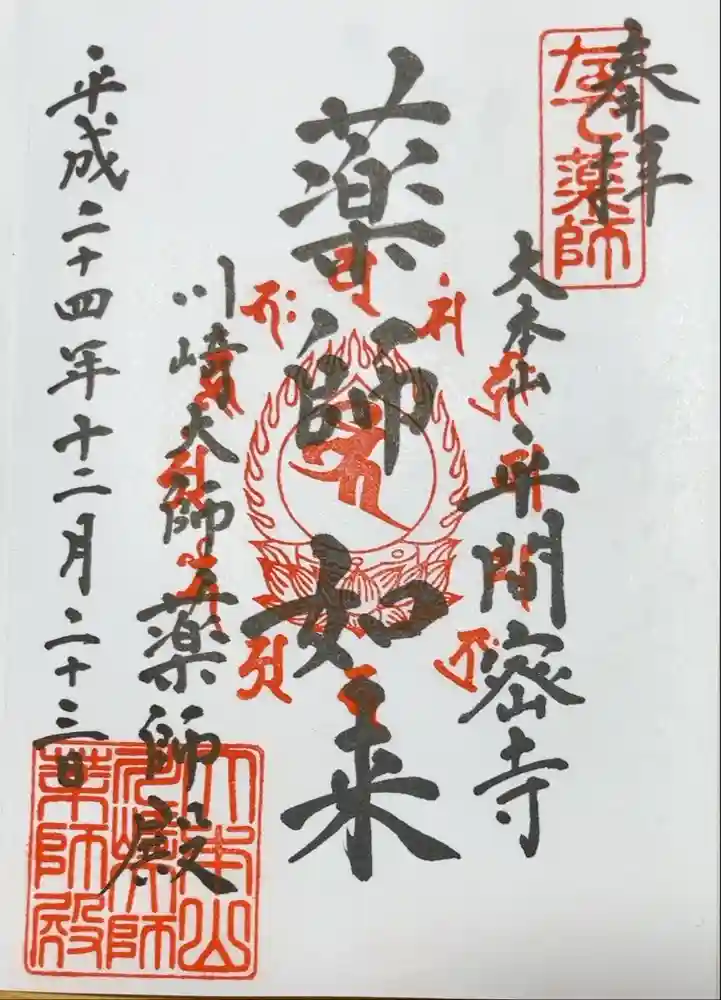 奉拝
なで薬師
大本山平間密寺
薬師如来
川崎大師薬師殿
平成二十四年十二月二十三日
大本山
川崎大師
薬師殿